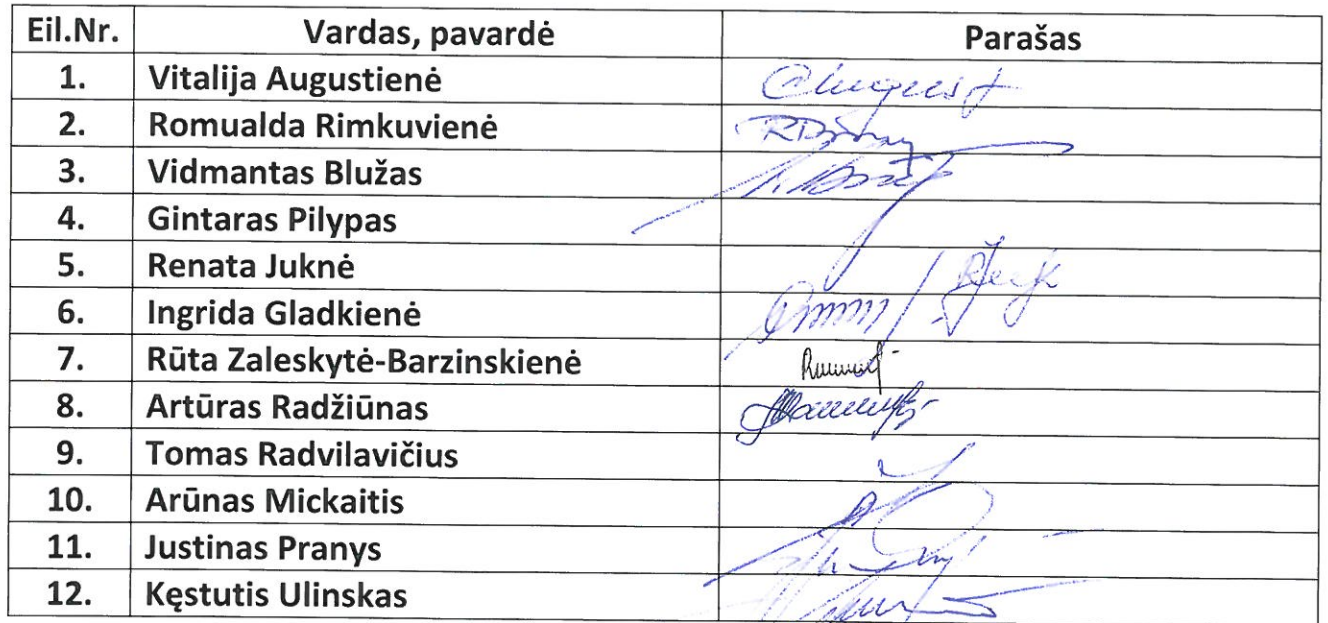 Eil.Nr. Vardas, pavardė Parašas
1. Vitalija Augustienė
2. Romualda Rimkuvienė
3. Vidmantas Blužas
4. Gintaras Pilypas
5. Renata Juknė
6. Ingrida Gladkienė
7. Rūta Zaleskytė-Barzinskienė
8. Artūras Radžiūnas
9. Tomas Radvilavičius
10. Arūnas Mickaitis
11. Justinas Pranys
12. Kęstutis Ulinskas